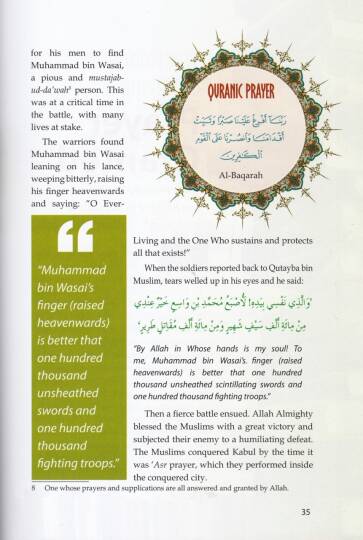 for his men to find
Muhammad bin Wasai,
a pious and mustajab-
ud-da'wah⁸ person. This
was at a critical time in
the battle, with many
lives at stake.
The warriors found
Muhammad bin Wasai
leaning on his lance,
weeping bitterly, raising
his finger heavenwards
and saying: "O Ever-
QURANIC PRAYER
رَبَّنَا أَفْرِغْ عَلَيْنَا صَبْرًا وَثَبِّتْ
أَقْدَامَنَا وَانْصُرْنَا عَلَى الْقَوْمِ
الْكَافِرِينَ
Al-Baqarah
Living and the One Who sustains and protects
all that exists!"
When the soldiers reported back to Qutayba bin
Muslim, tears welled up in his eyes and he said:
"وَالَّذِي نَفْسِي بِيَدِهِ! لَأُصْبُعُ مُحَمَّدِ بْنِ وَاسِعٍ خَيْرٌ عِنْدِي
مِنْ مِائَةِ أَلْفِ سَيْفٍ شَهِيرٍ وَمِنْ مِائَةِ أَلْفِ مُقَاتِلٍ طَرِيرٍ"
"By Allah in Whose hands is my soul! To
me, Muhammad bin Wasai's finger (raised
heavenwards) is better that one hundred
thousand unsheathed scintillating swords and
one hundred thousand fighting troops."
Then a fierce battle ensued. Allah Almighty
blessed the Muslims with a great victory and
subjected their enemy to a humiliating defeat.
The Muslims conquered Kabul by the time it
was 'Asr prayer, which they performed inside
the conquered city.
"Muhammad
bin Wasai's
finger (raised
heavenwards)
is better that
one hundred
thousand
unsheathed
swords and
one hundred
thousand
fighting troops."
8 One whose prayers and supplications are all answered and granted by Allah.
35